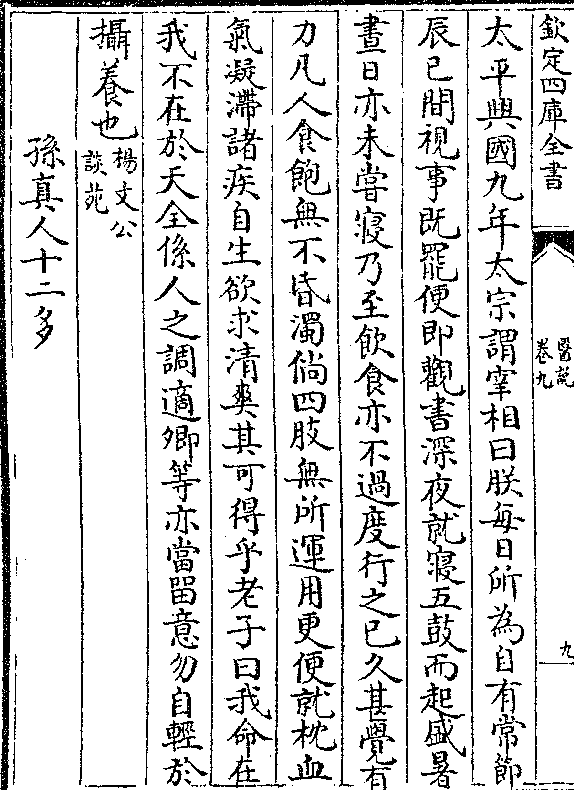 欽定四庫全書
醫說
卷九
九
太平興國九年太宗謂宰相曰朕每日所為自有常節
辰巳間視事既罷便即觀書深夜就寢五鼓而起盛暑
晝日亦未嘗寢乃至飲食亦不過度行之已久甚覺有
力凡人食飽無不昏濁倘四肢無所運用更便就枕血
氣凝滯諸疾自生欲求清爽其可得乎老子曰我命在
我不在於天全係人之調適卿等亦當留意勿自輕於
攝養也
楊文公
談苑
孫真人十二多